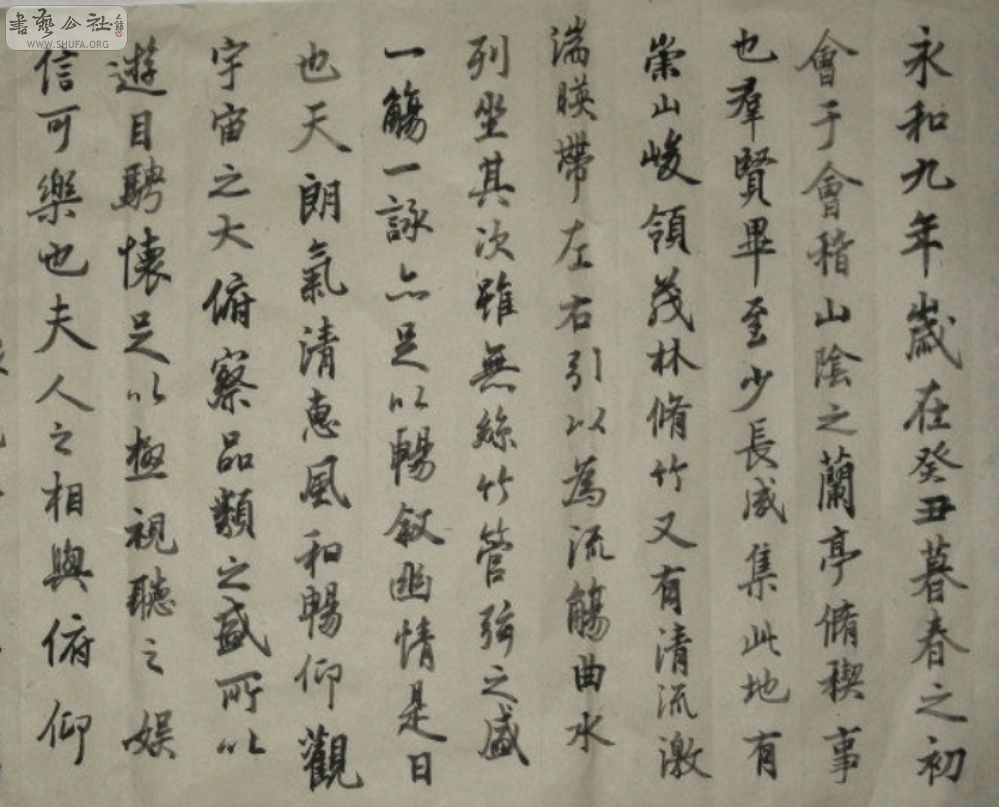 永和九年歲在癸丑暮春之初
會于會稽山陰之蘭亭脩稧事
也羣賢畢至少長咸集此地有
崇山峻領茂林脩竹又有清流激
湍暎帶左右引以為流觴曲水
列坐其次雖無絲竹管弦之盛
一觴一詠亦足以暢敘幽情是日
也天朗氣清惠風和暢仰觀
宇宙之大俯察品類之盛所以
遊目騁懷足以極視聽之娛
信可樂也夫人之相與俯仰
書藝公社
WWW.SHUFA.ORG